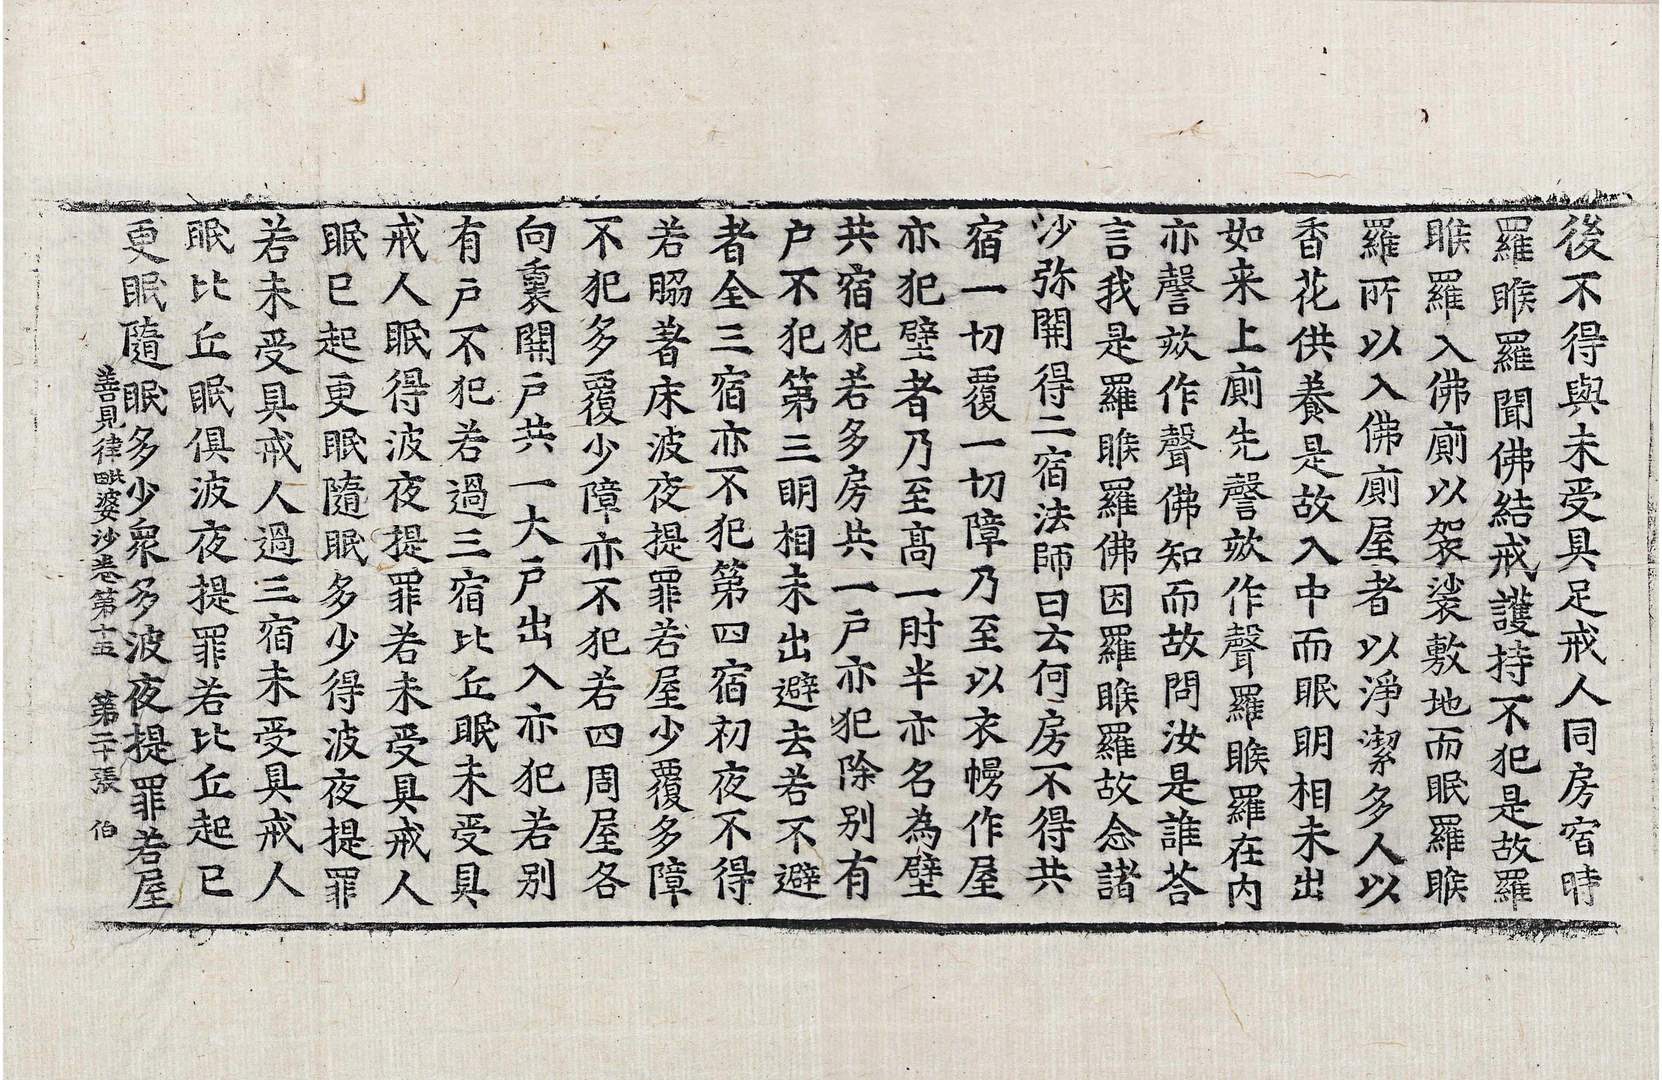 後不得與未受具足戒人同房宿時
羅睺羅聞佛結戒護持不犯是故羅
睺羅入佛廁以袈裟敷地而眠羅睺
羅所以入佛廁屋者以淨潔多人以
香花供養是故入中而眠明相未出
如来上廁先謦欬作聲羅睺羅在内
亦謦欬作聲佛知而故問汝是誰荅
言我是羅睺羅佛因羅睺羅故念諸
沙弥開得二宿法師曰云何房不得共
宿一切覆一切障乃至以衣幔作屋
亦犯壁者乃至高一肘半亦名為壁
共宿犯若多房共一户亦犯除别有
户不犯第三明相未出避去若不避
者全三宿亦不犯第四宿初夜不得
若脇著床波夜提罪若屋少覆多障
不犯多覆少障亦不犯若四周屋各
向裏開户共一大户出入亦犯若别
有户不犯若過三宿比丘眠未受具
戒人眠得波夜提罪若未受具戒人
眠已起更眠隨眠多少得波夜提罪
若未受具戒人過三宿未受具戒人
眠比丘眠俱波夜提罪若比丘起已
更眠隨眠多少衆多波夜提罪若屋
善見律毗婆沙卷第十五　第二十張　伯